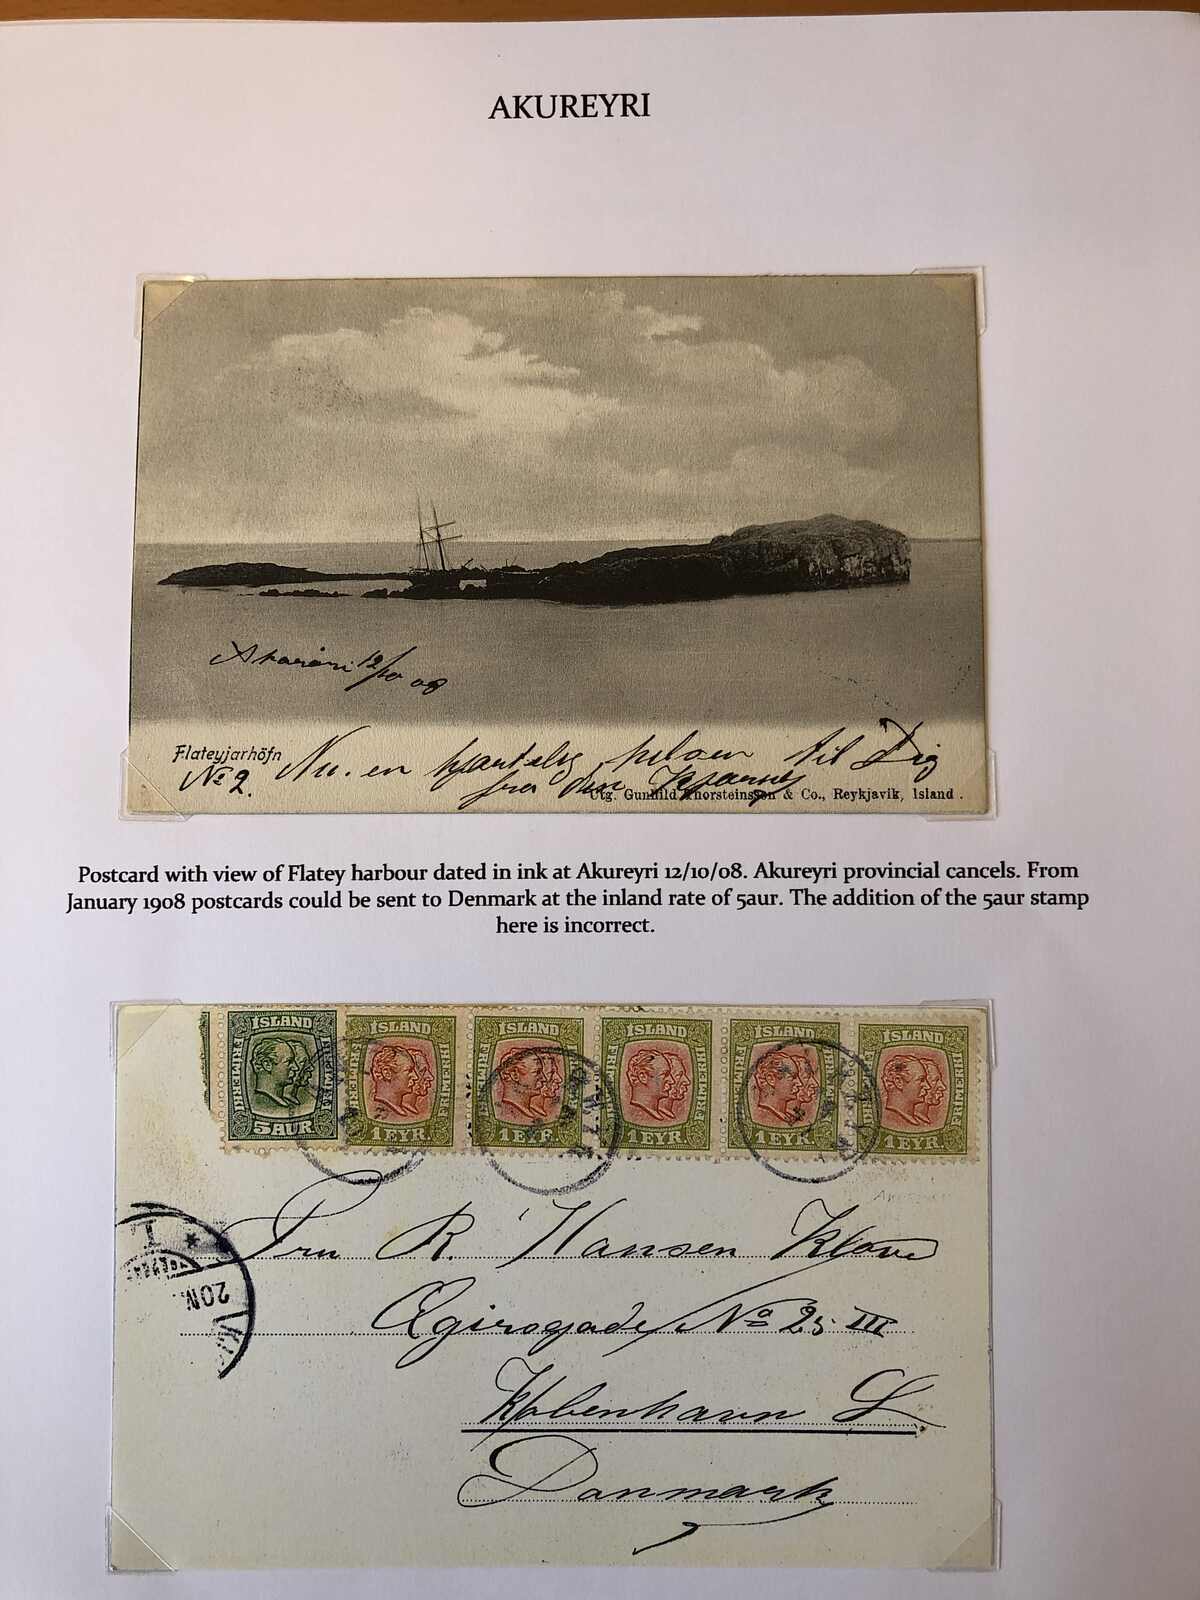 AKUREYRI
Akureyri 12/10 08
Flateyjarhöfn
No 2. Nu. en hjærtelig hilsen til Dig
fra din
Utg. Gunhild Thorsteinsson & Co., Reykjavik, Island.
Postcard with view of Flatey harbour dated in ink at Akureyri 12/10/08. Akureyri provincial cancels. From
January 1908 postcards could be sent to Denmark at the inland rate of 5aur. The addition of the 5aur stamp
here is incorrect.
ÍSLAND ÍSLAND ÍSLAND ÍSLAND ÍSLAND ÍSLAND
FRIMERKI FRIMERKI FRIMERKI FRIMERKI FRIMERKI FRIMERKI
5 AUR 1 EYR. 1 EYR. 1 EYR. 1 EYR. 1 EYR.
Fru R. Hansen Klove
Ægirsgade No 25 III
København L
Danmark
20M